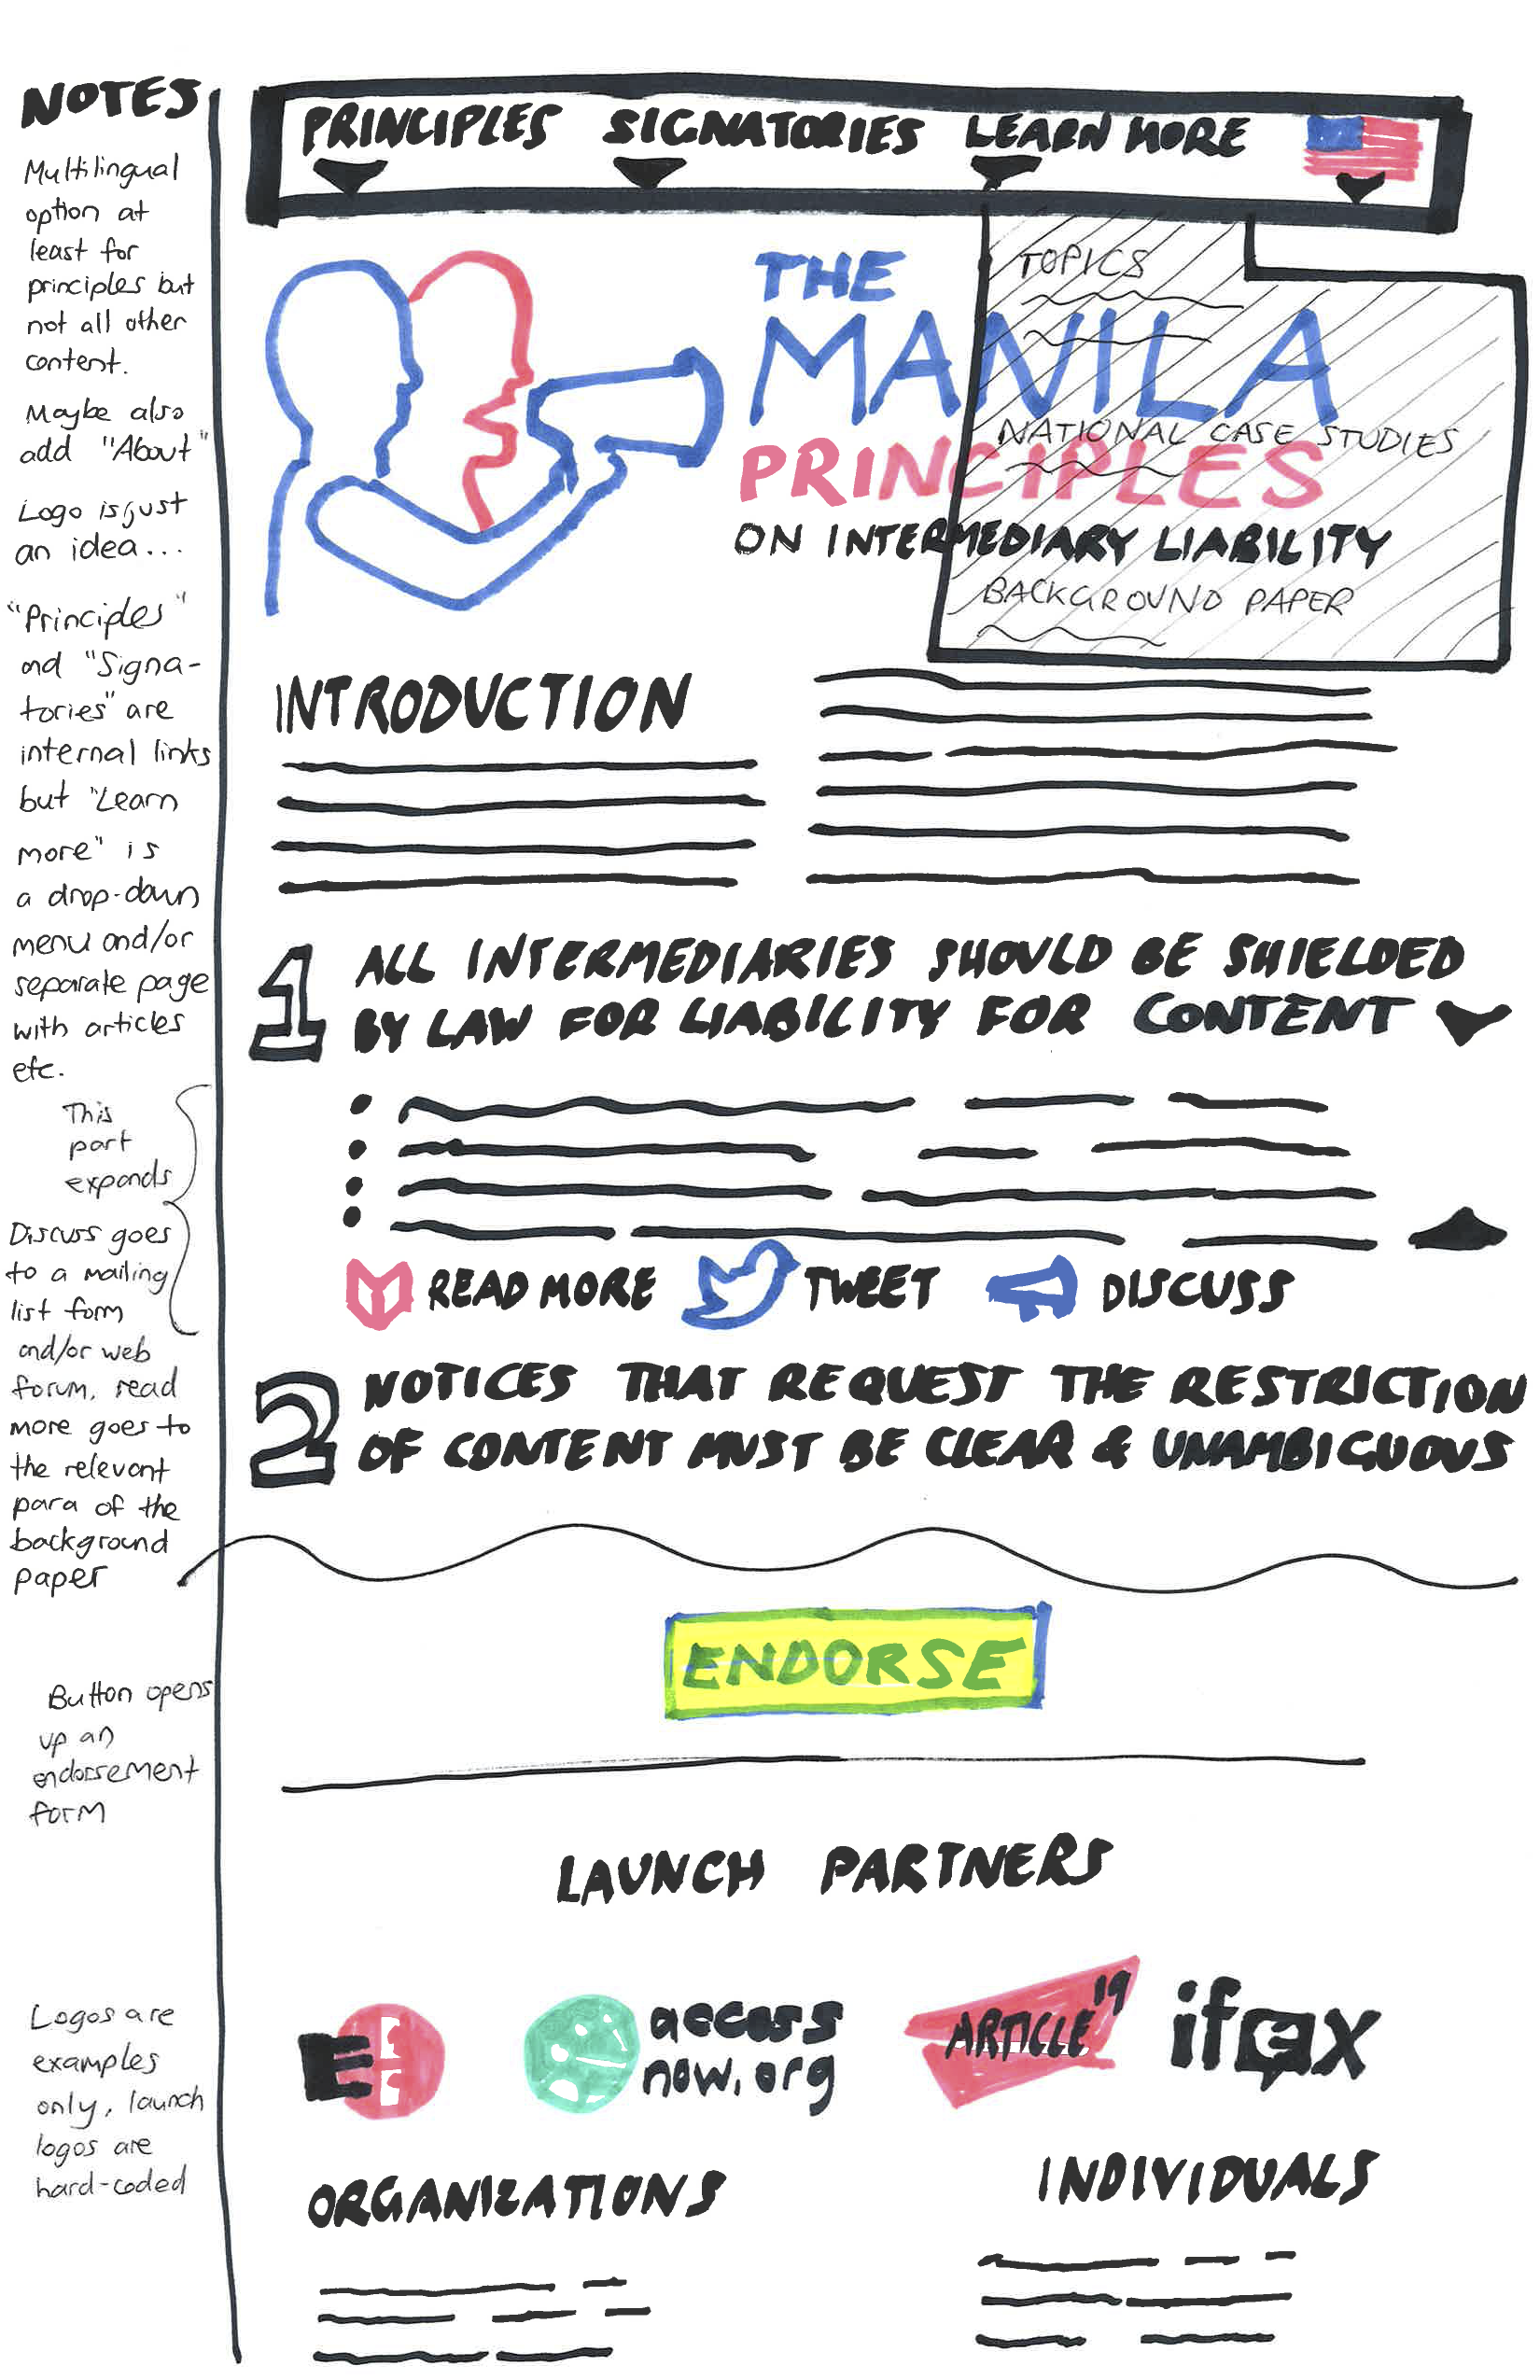 NOTES
Multilingual
option at
least for
principles but
not all other
content.
Maybe also
add "About"
Logo is just
an idea...
"Principles"
and "Signa-
tories" are
internal links
but "Learn
more" is
a drop-down
menu and/or
separate page
with articles
etc.
This
part
expands
Discuss goes
to a mailing
list form
and/or web
forum, read
more goes to
the relevant
para of the
background
paper
Button opens
up an
endorsement
form
Logos are
examples
only, launch
logos are
hard-coded
PRINCIPLES SIGNATORIES LEARN MORE
TOPICS
NATIONAL CASE STUDIES
BACKGROUND PAPER
THE
MANILA
PRINCIPLES
ON INTERMEDIARY LIABILITY
INTRODUCTION
1 ALL INTERMEDIARIES SHOULD BE SHIELDED
BY LAW FOR LIABILITY FOR CONTENT
READ MORE TWEET DISCUSS
2 NOTICES THAT REQUEST THE RESTRICTION
OF CONTENT MUST BE CLEAR & UNAMBIGUOUS
ENDORSE
LAUNCH PARTNERS
EFF
access
now.org
ARTICLE 19
ifex
ORGANIZATIONS
INDIVIDUALS